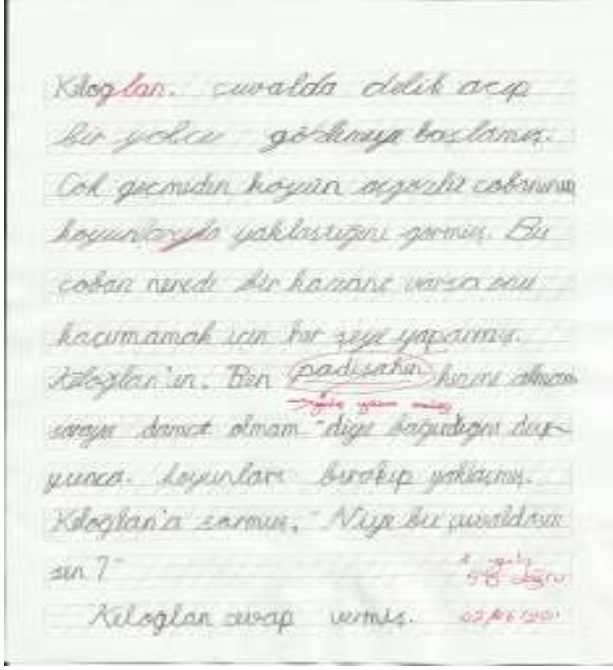 Keloğlan. çuvalda delik açıp
bir yolcu gözlemeye başlamış.
Çok geçmeden köyün açgözlü çobanının
koyunlarıyla yaklaştığını görmüş. Bu
çoban nerede bir kazanç varsa onu
kaçırmamak için her şeyi yaparmış.
Keloğlan'ın. Ben padişahın kızını almam
saraya damat olmam" diye bağırdığını du-
yunca. koyunları bırakıp yaklaşmış.
Keloğlan'a sormuş, "Niye bu çuvaldasın
sen ?"
Keloğlan cevap vermiş.